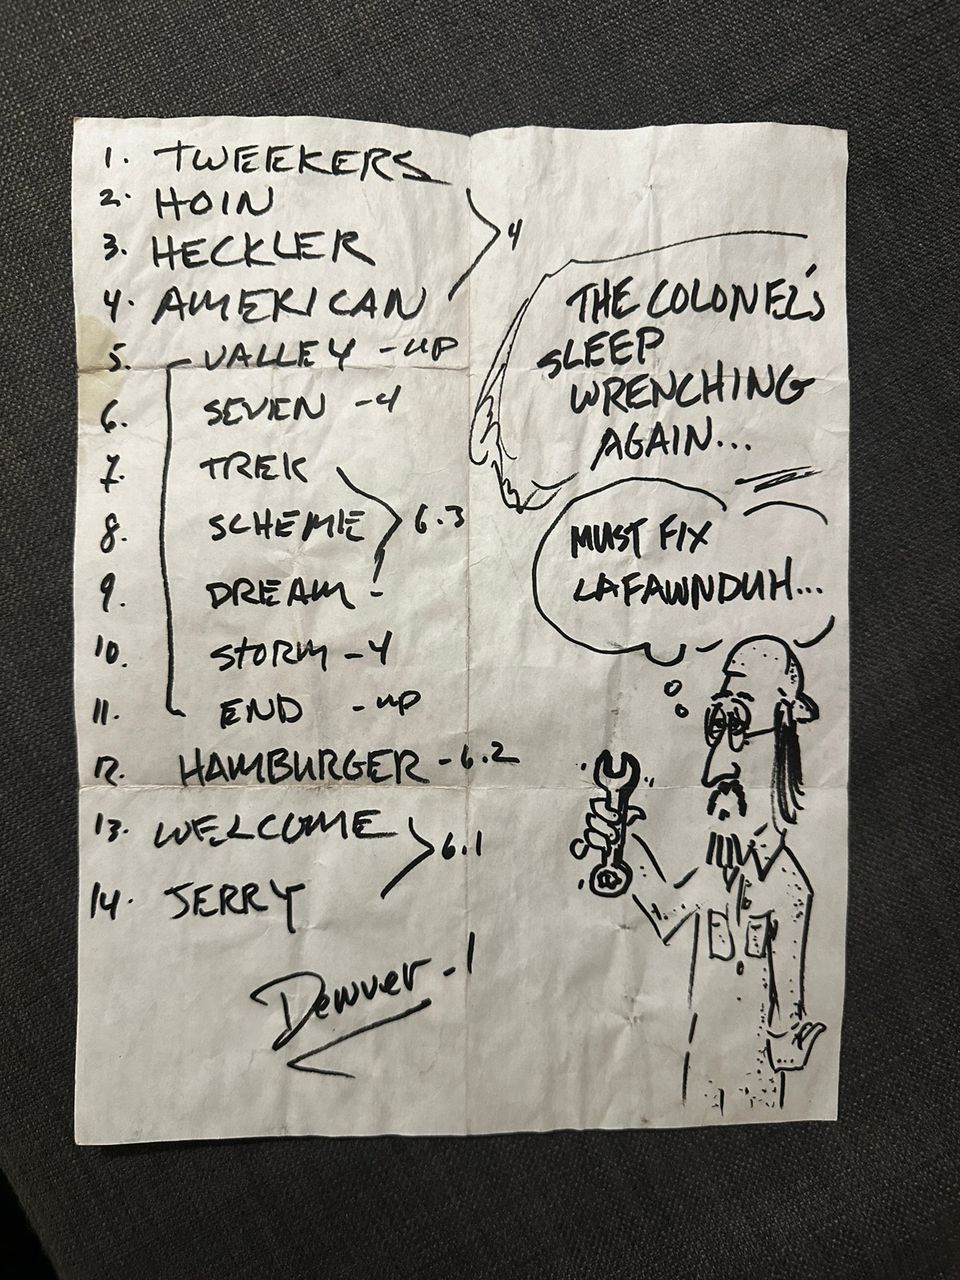 1. TWEEKERS
2. HOIN
3. HECKLER
4. AMERICAN
4
5. VALLEY - UP
6. SEVEN - 4
7. TREK
8. SCHEME
6.3
9. DREAM -
10. STORM - 4
11. END - UP
12. HAMBURGER - 6.2
13. WELCOME
14. JERRY
6.1
Denver - 1
THE COLONEL'S
SLEEP
WRENCHING
AGAIN...
MUST FIX
LAFAWNDUH...